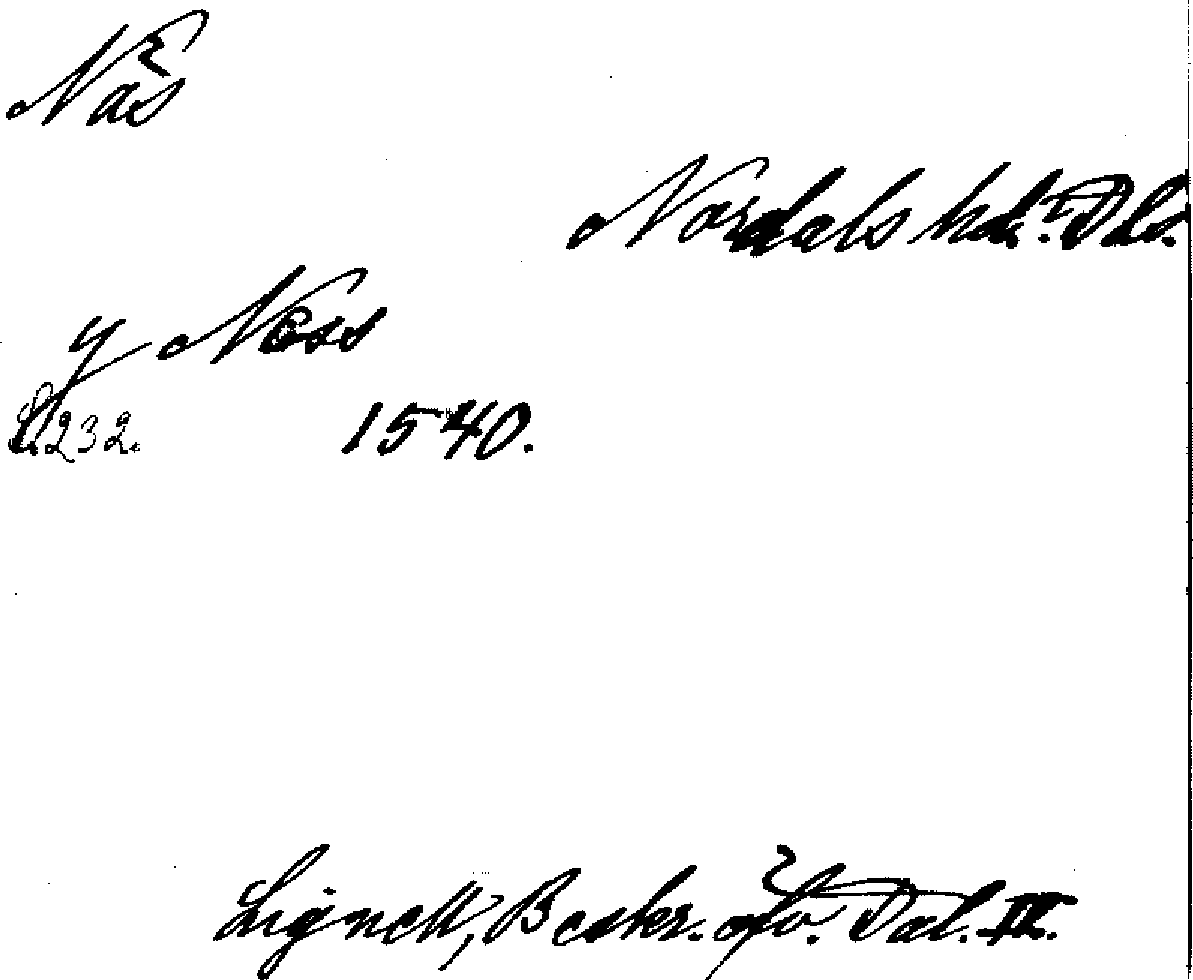 Näs
Nordals hd. Dls.
y Ness
S. 232. 1540.
Lignell, Beskr. öfv. Dal. II.